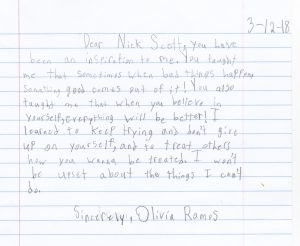 3-12-18
Dear Nick Scott, you have
been an inspiration to me. You taught
me that sometimes when bad things happen
something good comes out of it! You also
taught me that when you believe in
yourself, everything will be better! I
learned to keep trying and don't give
up on yourself, and to treat others
how you wanna be treated. I won't
be upset about the things I can't
do.
Sincerely, Olivia Ramos